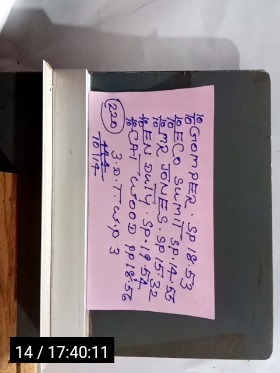 10/10 GOMPER. SP 18.53
10/10 ECO SUMIT SP.14.56
10/10 MR JONES. SP 15.32
10/10 EN DUTY. SP. 19.54
10/10 CAT WOOD PP 18.56
220
3.D.T W.P 3
10117
14 / 17:40:11